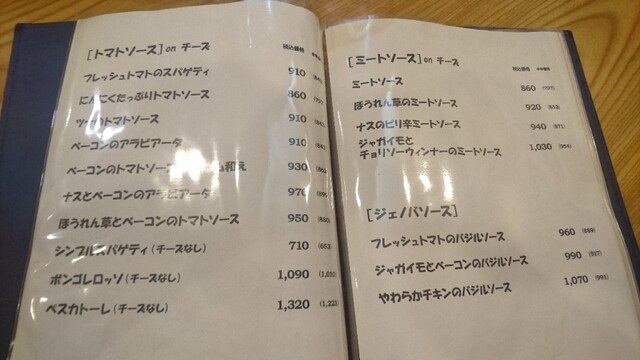 [トマトソース] on チーズ
税込価格
フレッシュトマトのスパゲティ 910
にんにくたっぷりトマトソース 860
ツナのトマトソース 910
ベーコンのアラビアータ 910
ベーコンのトマトソース 和え 930
ナスとベーコンのアラビアータ 970
ほうれん草とベーコンのトマトソース 950 (880)
シンプルスパゲティ (チーズなし) 710 (653)
ボンゴレロッソ (チーズなし) 1,090
ペスカトーレ (チーズなし) 1,320
[ミートソース] on チーズ
税込価格
ミートソース 860 (797)
ほうれん草のミートソース 920 (852)
ナスのピリ辛ミートソース 940 (871)
ジャガイモと
チョリソーウィンナーのミートソース 1,030 (954)
[ジェノバソース]
フレッシュトマトのバジルソース 960 (889)
ジャガイモとベーコンのバジルソース 990 (917)
やわらかチキンのバジルソース 1,070 (991)